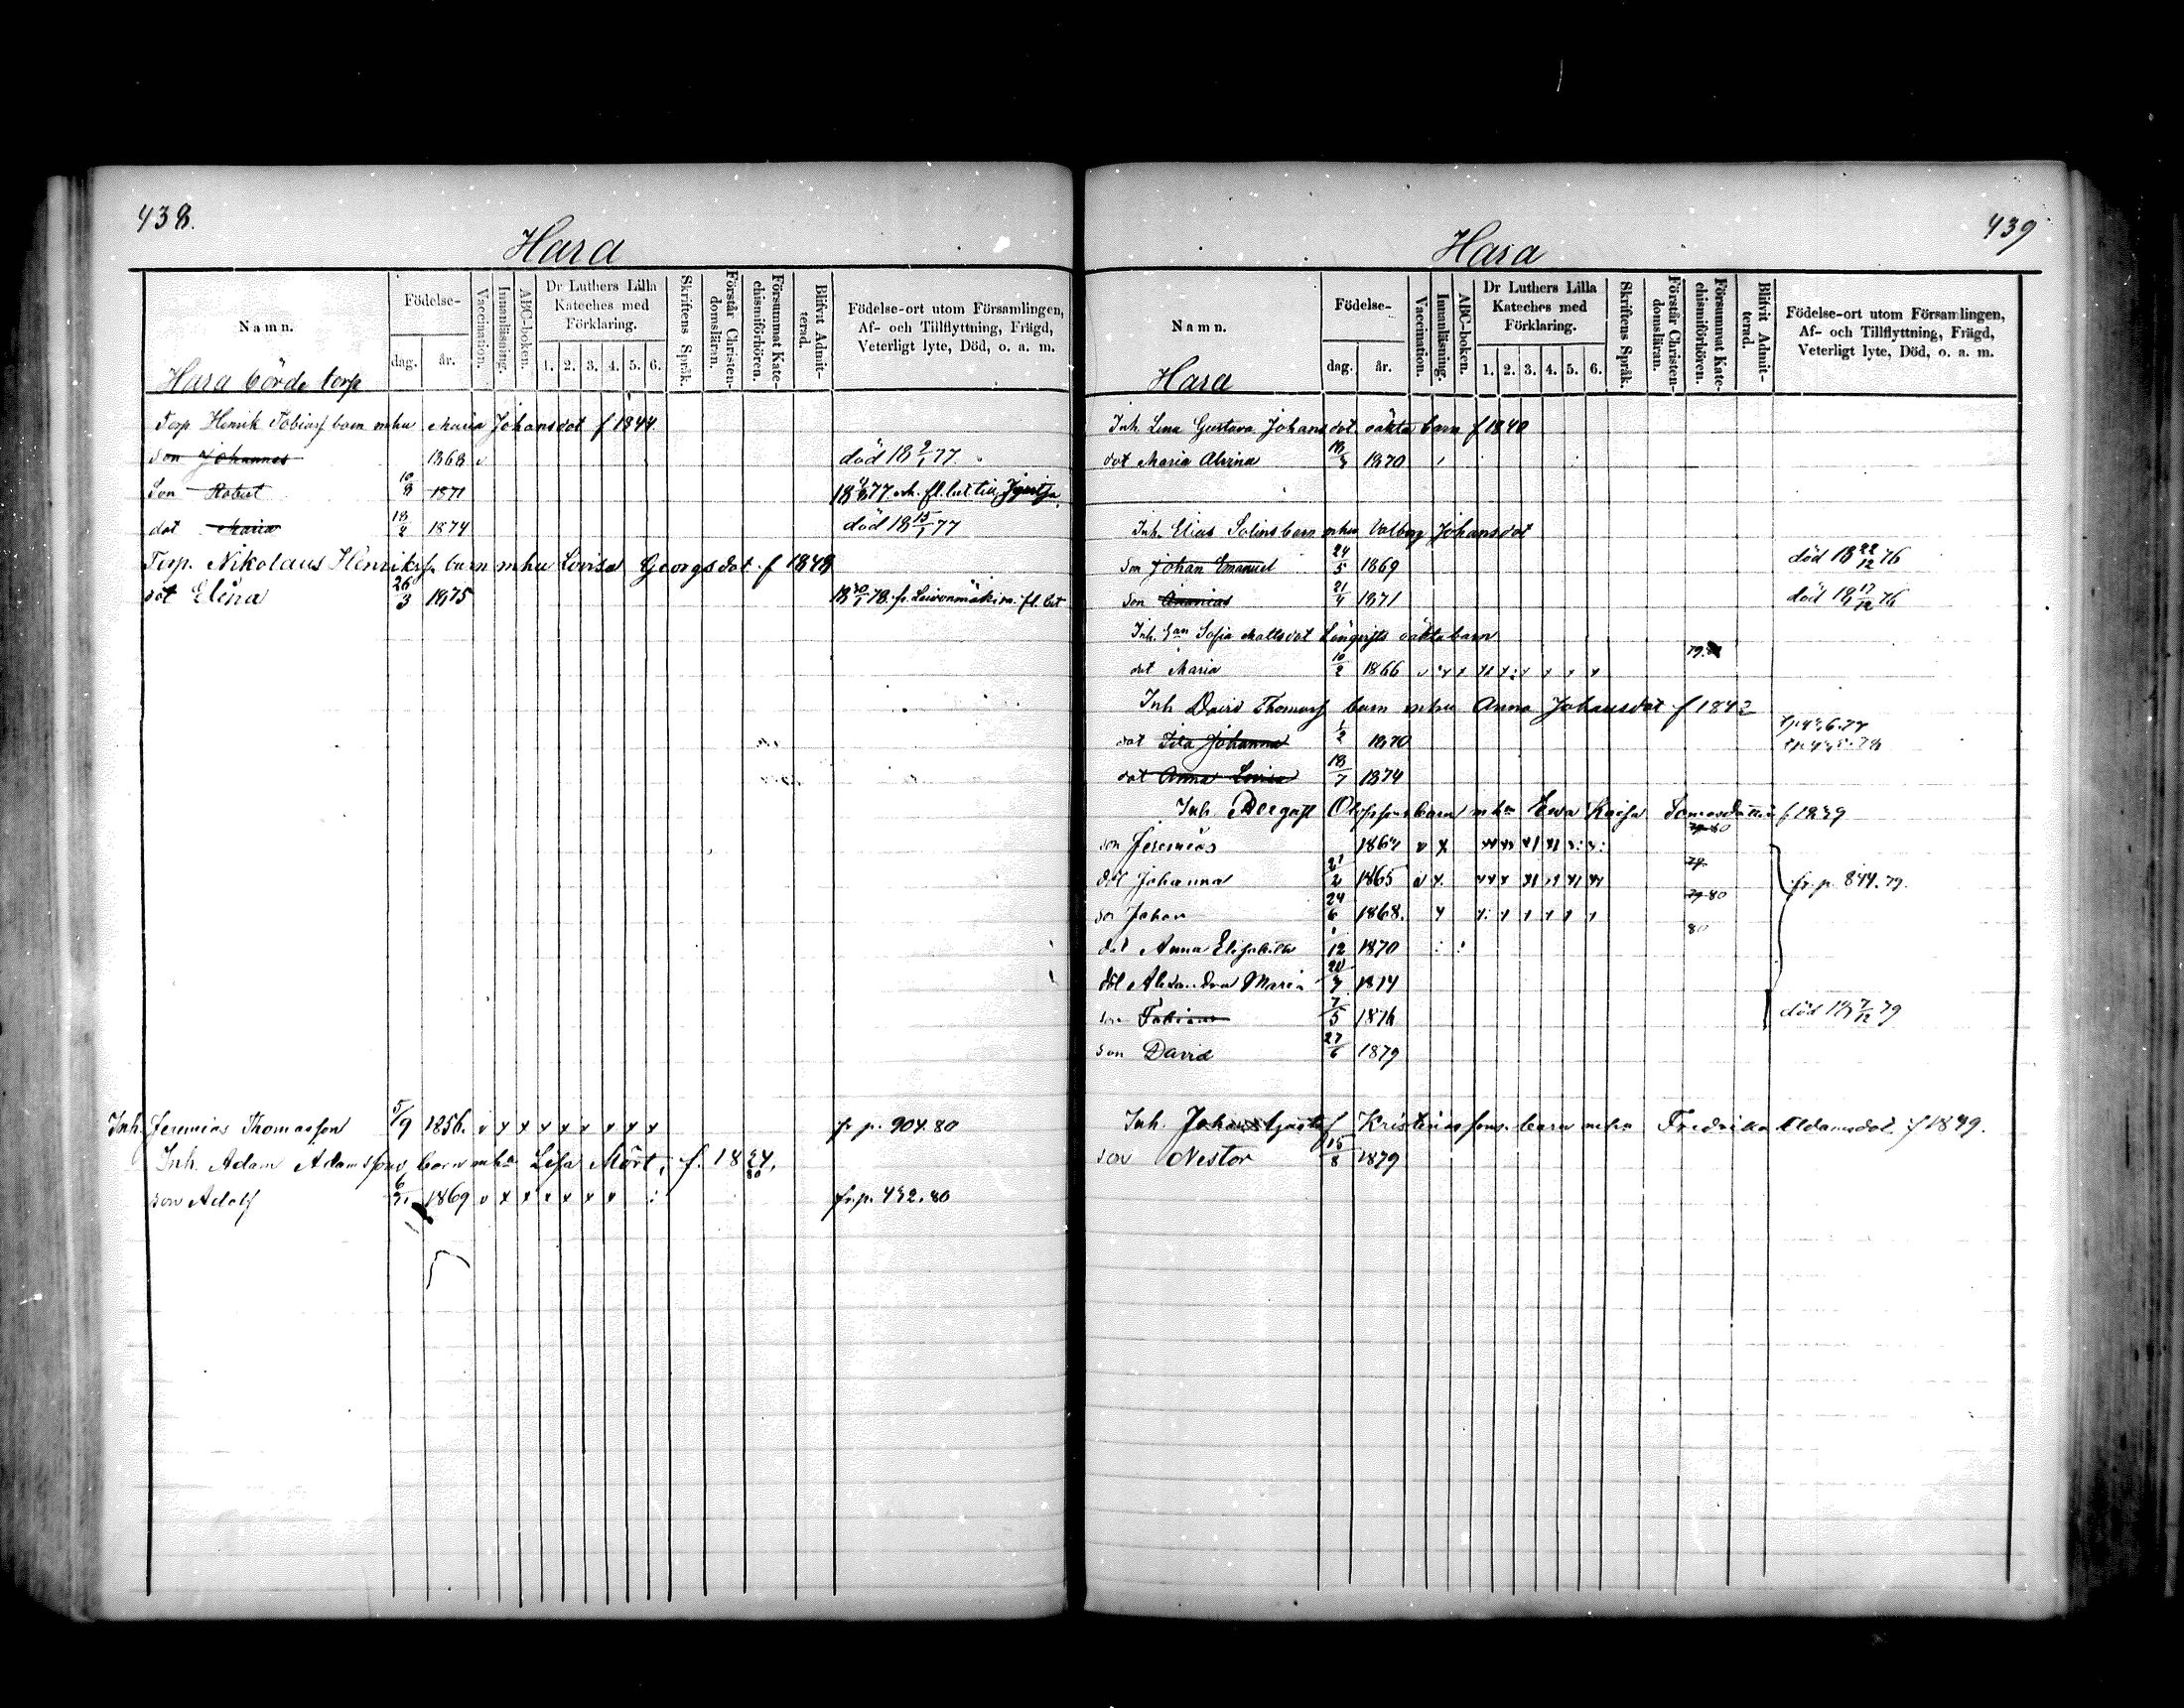 438.
Hara
Namn.
Födelse-
dag.
år.
Vaccination.
Innanläsning.
ABC-boken.
Dr Luthers Lilla Kateches med Förklaring.
1. 2. 3. 4. 5. 6.
Skriftens Språk.
Förstår Christendomsläran.
Försummat Katechismiförhören.
Blifvit Admitterad.
Födelse-ort utom Församlingen, Af- och Tillflyttning, Frägd, Veterligt lyte, Död, o. a. m.
Hara Börde torp
Torp Henrik Tobiasf barn mhu Maria Johansdot f 1844
son Johannes 1868 v död 18 9/1 77
Son Robert 10/8 1871 fl. bet till
dot Maria 18/4 1874 död 18 15/1 77
Torp. Nikolaus Henriksf. barn mhu Lovisa Georgsdot f 1848
dot Elina 26/3 1875 fl. bet
Inh. Jeremias Thomasson 5/9 1856. v x x x x x x x x fr p. 904.80
Inh. Adam Adamssons barn mha Lisa Mört, f. 1824,
80
son Adolf 1869 v x x x x x x : fr.p. 432.80
439
Hara
Namn.
Födelse-
dag.
år.
Vaccination.
Innanläsning.
ABC-boken.
Dr Luthers Lilla Kateches med Förklaring.
1. 2. 3. 4. 5. 6.
Skriftens Språk.
Förstår Christendomsläran.
Försummat Katechismiförhören.
Blifvit Admitterad.
Födelse-ort utom Församlingen, Af- och Tillflyttning, Frägd, Veterligt lyte, Död, o. a. m.
Hara
Inh. Lena Gustava Johansdot oäkta barn f 1840
dot Maria Alvina 1870
Inh. Elias Solins barn mhu Valborg Johansdot
Son Johan Emanuel 24/5 1869 död 18 22/12 76
Son Ananias 21/4 1871 död 18 17/12 76
Inh. Sofia Mattsdot oäkta barn
dot Maria 10/2 1866
Inh David Thomasf barn mhu Anna Johansdot f 1842
dot Ida Johanna 1/2 1870
dot Anna Lovisa 18/7 1874
Inh Olofssons barn mha Ewa Kaisa f 1839
son Jeremias
dot Johanna 21/2 1865 fr. p. 844. 79.
79 80
son Johan 24/6 1868.
80
dot Anna Elisabeth 1/12 1870
dot Alexandra Maria
son 7/5 1876 död 18 7/12 79
son David 27/6 1879
Inh. Johan Gustaf Kristiansons barn mha Fredrika Adamsdot. f 1849.
son Nestor 15/8 1879